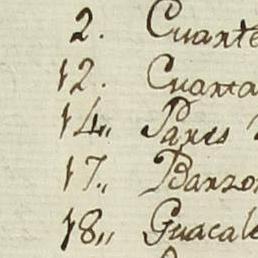 2. Cuante
12. Cuanca
14,, Panes
17,, Banzo
18,, Guacale